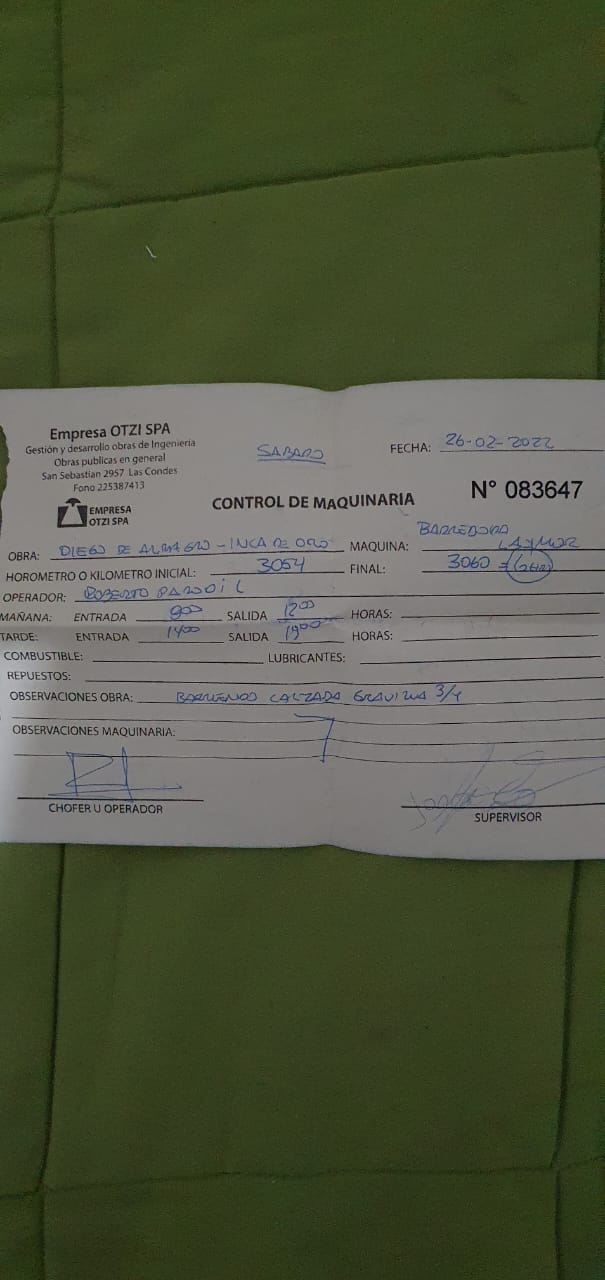 Empresa OTZI SPA
Gestión y desarrollo obras de Ingenieria
Obras publicas en general
San Sebastian 2957 Las Condes
Fono 225387413
EMPRESA
OTZI SPA
SABADO
FECHA: 26-02-2022
CONTROL DE MAQUINARIA
N° 083647
OBRA: DIEGO DE ALMAGRO - INCA DE ORO MAQUINA: BARREDORA LAYMOR
HOROMETRO O KILOMETRO INICIAL: 3054 FINAL: 3060 = 6HR
OPERADOR: ROBERTO
MAÑANA: ENTRADA 900 SALIDA 1200 HORAS:
TARDE: ENTRADA 1400 SALIDA 1900 HORAS:
COMBUSTIBLE: LUBRICANTES:
REPUESTOS:
OBSERVACIONES OBRA: BARRIENDO CALZADA GRAVILLA 3/4
OBSERVACIONES MAQUINARIA:
CHOFER U OPERADOR
SUPERVISOR